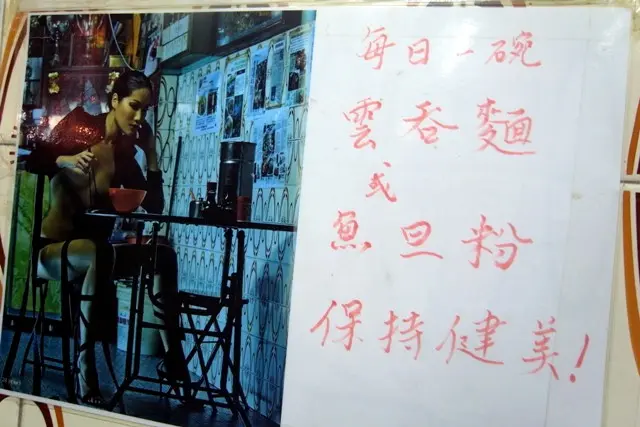 每日一碗
雲吞麵
或
魚旦粉
保持健美!